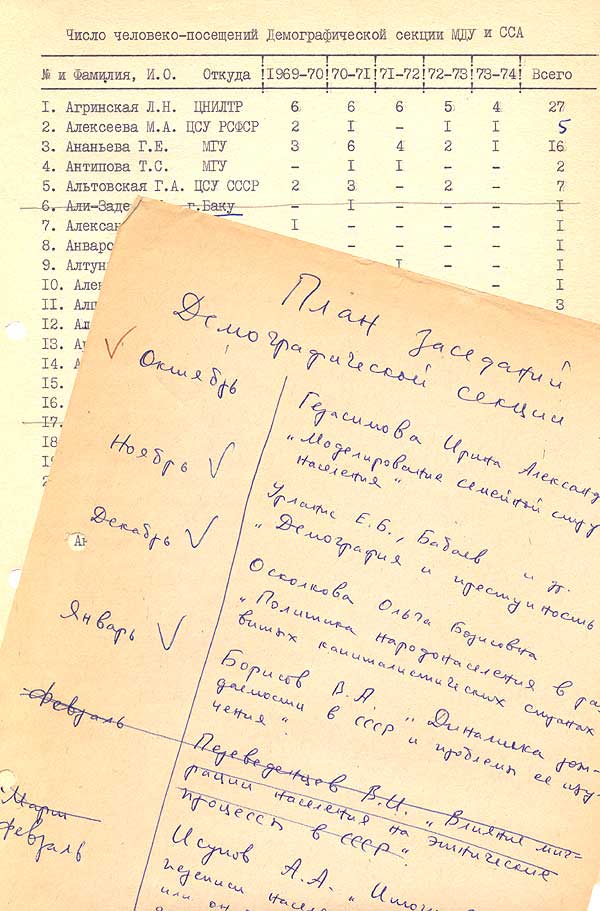 Число человеко-посещений Демографической секции МДУ и ССА
№ и Фамилия, И.О. Откуда !1969-70!70-71!71-72!72-73!73-74! Всего
1. Агринская Л.Н. ЦНИЛТР 6 6 6 5 4 27
2. Алексеева М.А. ЦСУ РСФСР 2 I - I I 5
3. Ананьева Г.Е. МГУ 3 6 4 2 I 16
4. Антипова Т.С. МГУ - I I - - 2
5. Альтовская Г.А. ЦСУ СССР 2 3 - 2 - 7
6. Али-Заде г.Баку - I - - - I
7. Алексан I - - - - I
8. Анваро - - I
9. Алтун I - - I
10. Але - I
11. Алп 3
12. Ал
13. А
14. А
15.
16.
17.
18
План заседаний
Демографической секции
Октябрь
Герасимова Ирина Александ
"Моделирование семейной стру
населения"
Ноябрь
Урланис Е.Б., Бабаев и др.
"Демография и преступность
Декабрь
Осколкова Ольга Борисовна
"Политика народонаселения в раз
витых капиталистических странах
Январь
Борисов В.А. "Динамика рож-
даемости в СССР и проблемы ее изу
чения".
Февраль
Переведенцев В.И. "Влияние миг-
рации населения на этнические
процессы в СССР".
Март
Февраль
Исупов А.А. "Итоги
переписи насел
или он